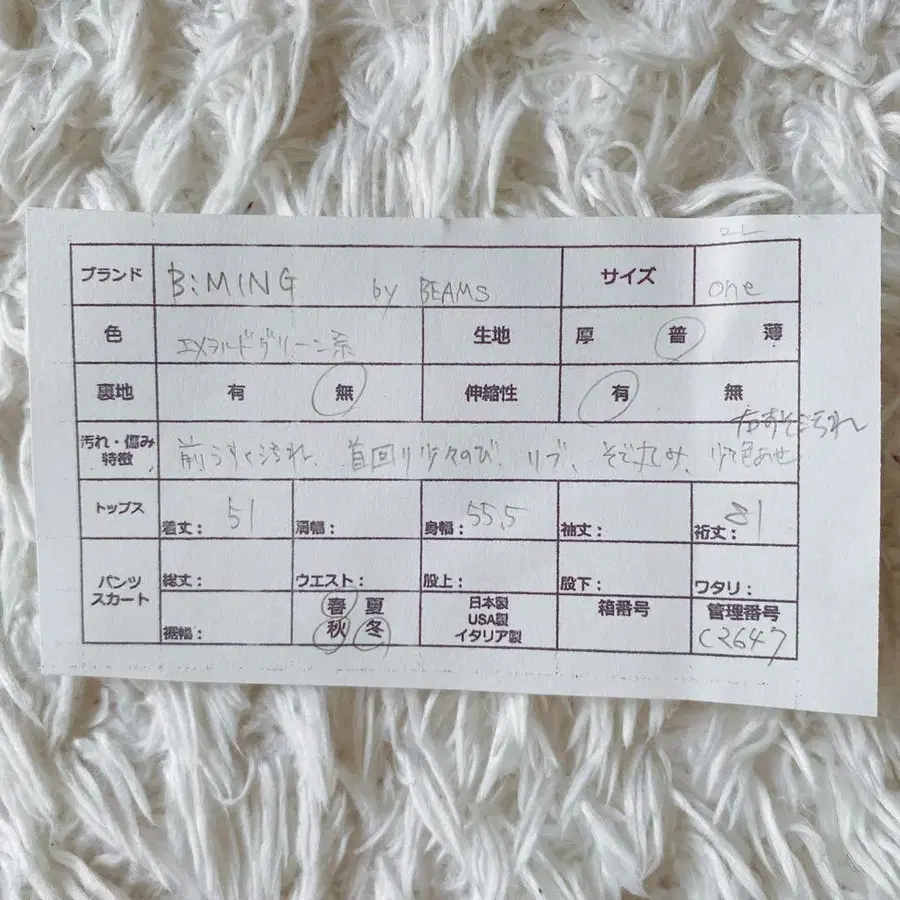 ブランド B:MING by BEAMS サイズ one
色 エメラルドグリーン系 生地 厚 普 薄
裏地 有 無 伸縮性 有 無
右すそ汚れ
汚れ・傷み 特徴 前うすく汚れ、首回り少々のび、リブ、そで丸み、少々色あせ
トップス 着丈: 51 肩幅: 身幅: 55.5 袖丈: 裄丈: 81
パンツ スカート 総丈: ウエスト: 股上: 股下: ワタリ:
裾幅: 春 夏 秋 冬 日本製 USA製 イタリア製 箱番号 管理番号 C2647